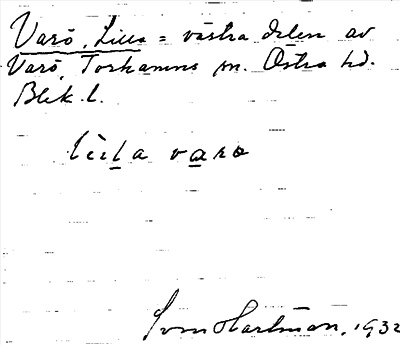 Varö, Lilla = västra delen av
Varö, Torhamns sn. Östra hd.
Blek. l.
Sven Hartman, 1932